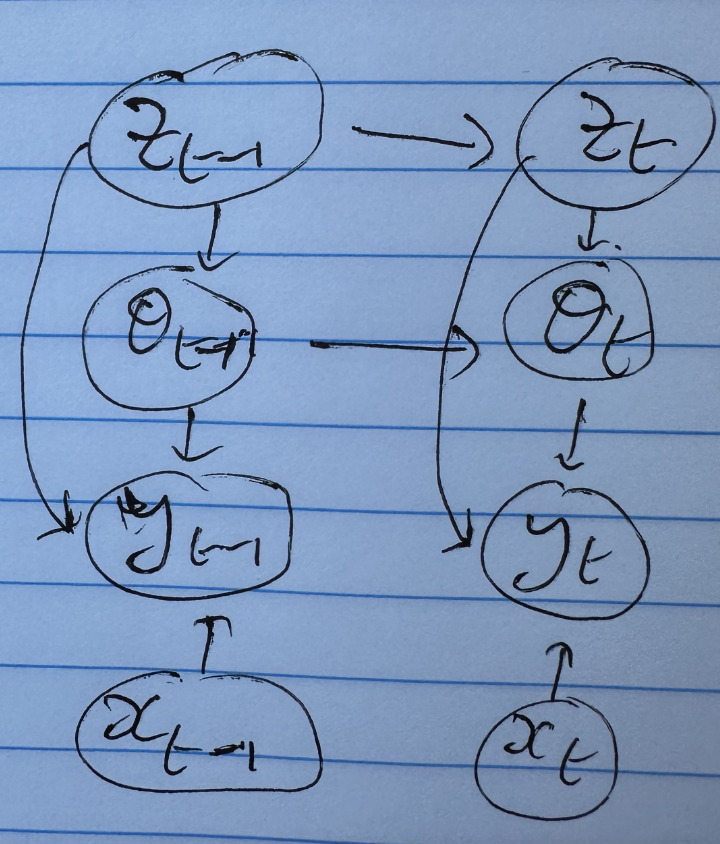 z_{t-1} z_t
θ_{t-1} θ_t
y_{t-1} y_t
x_{t-1} x_t